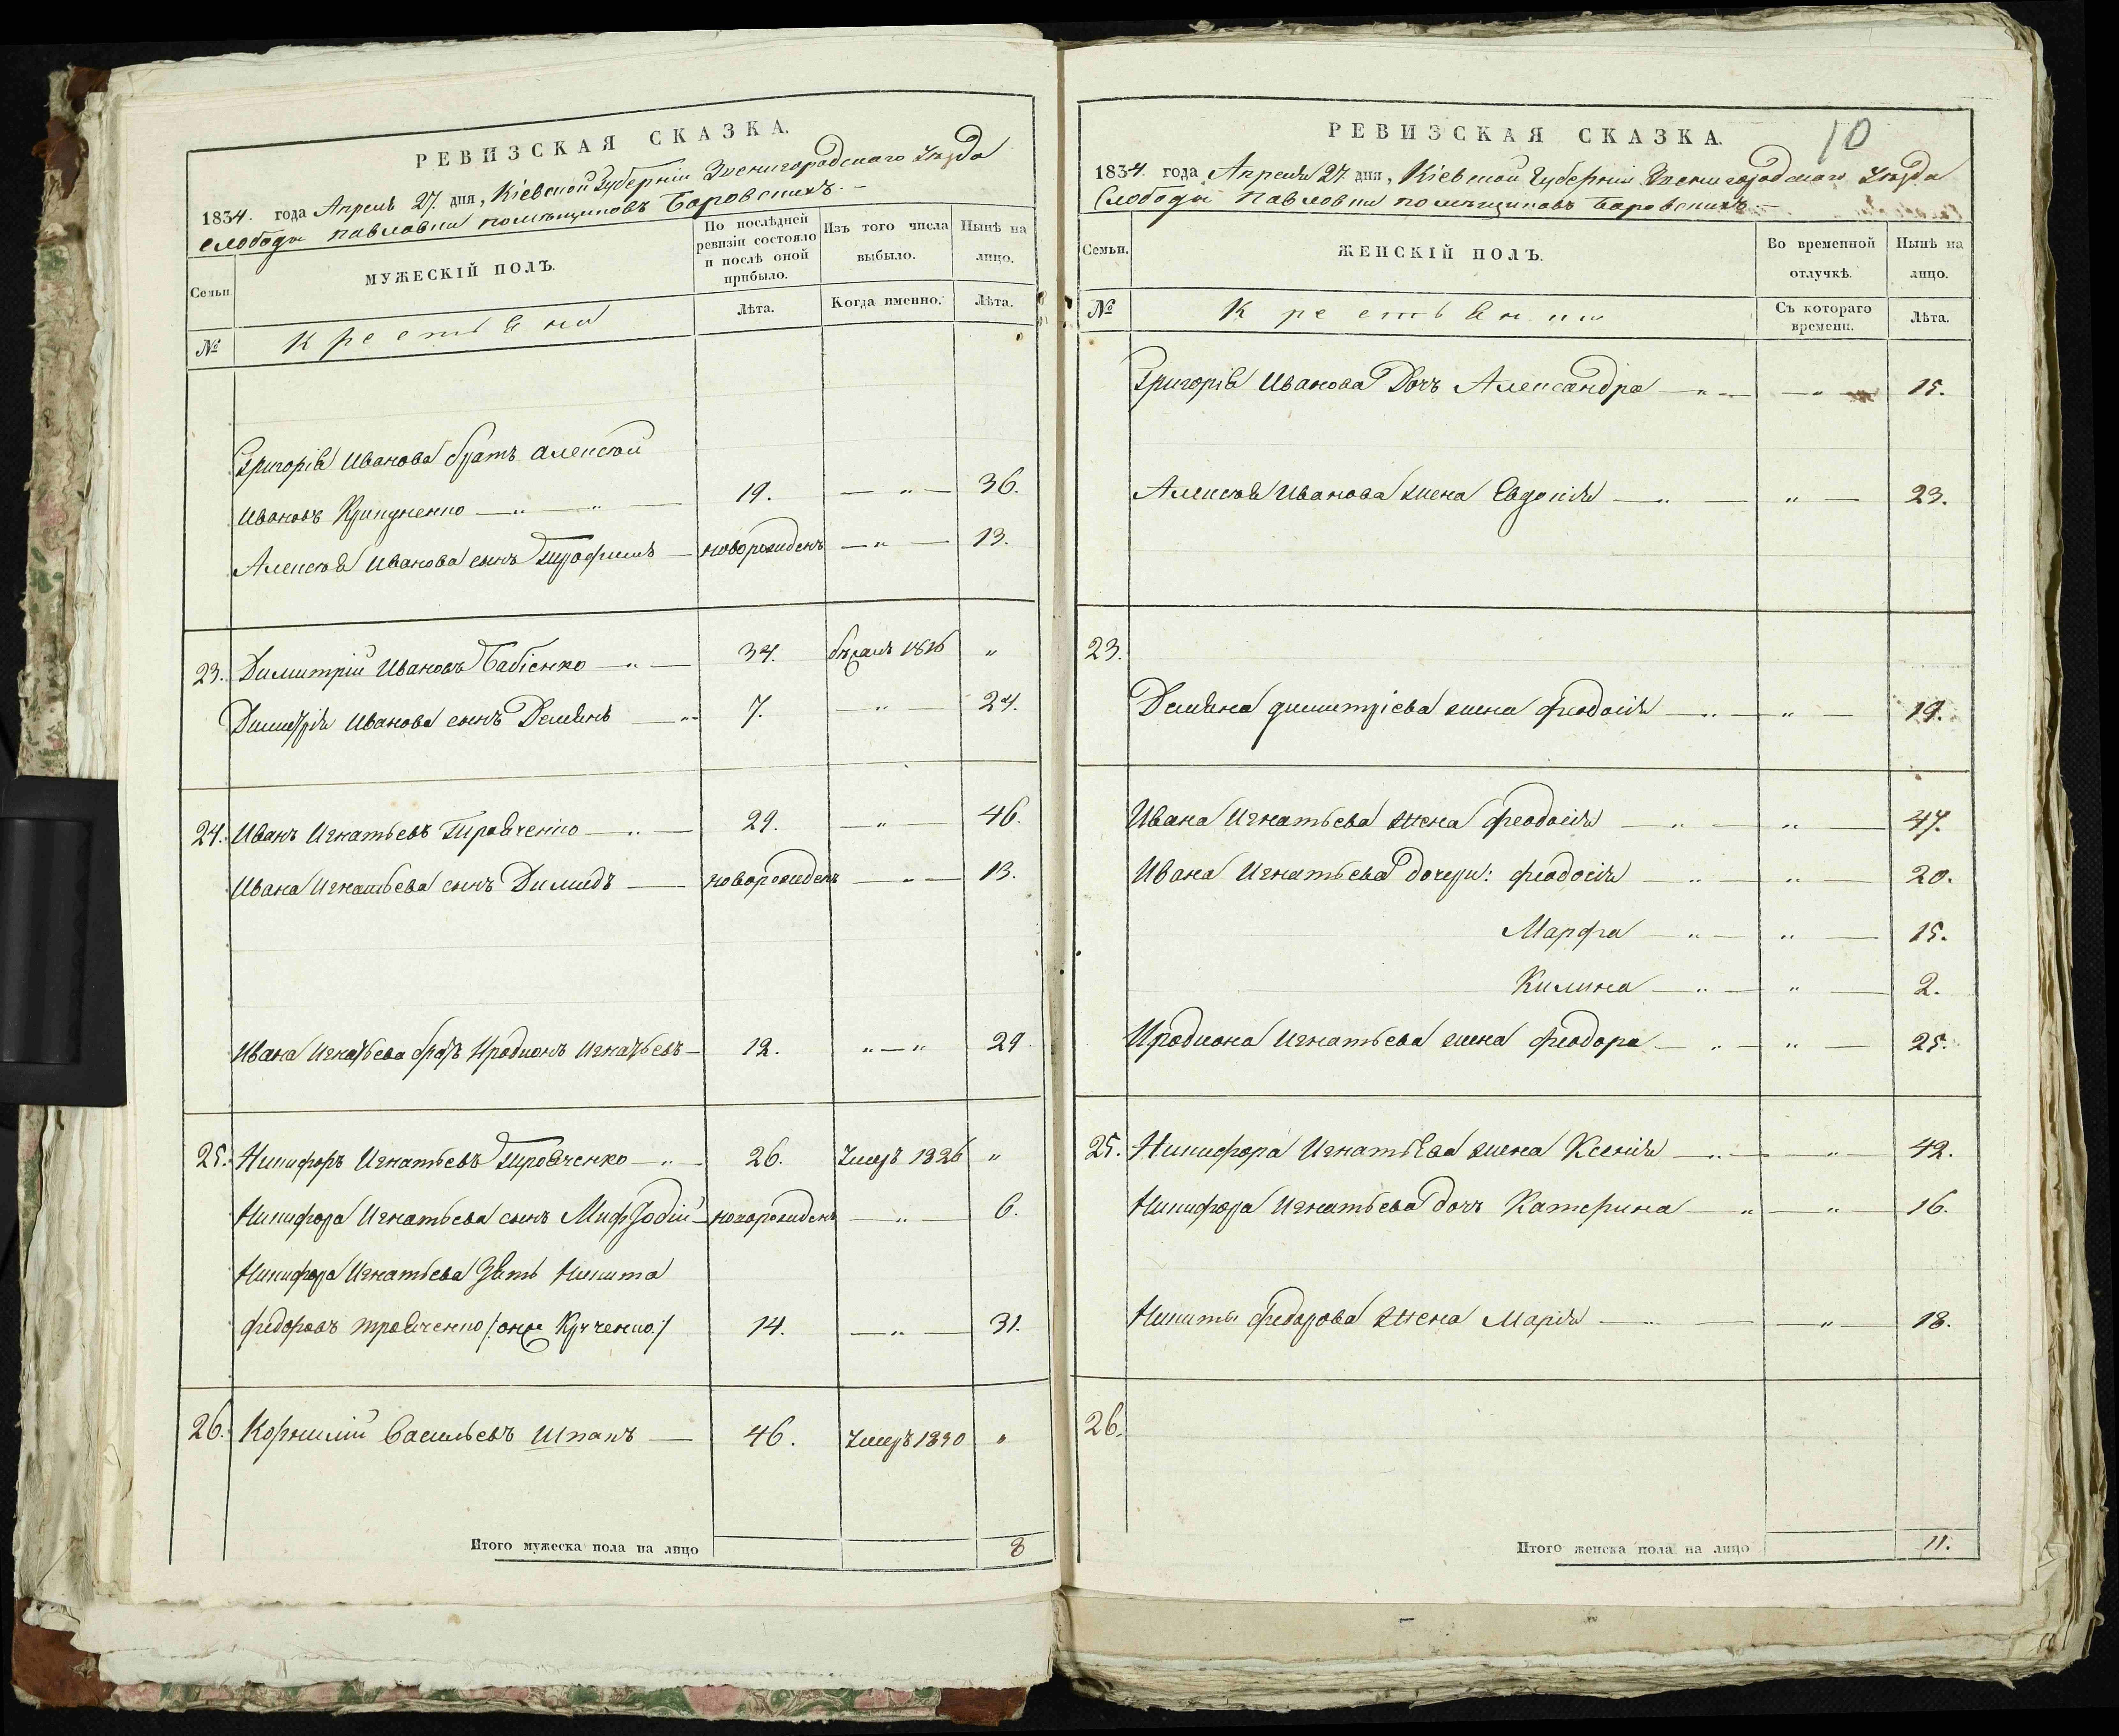 РЕВИЗСКАЯ СКАЗКА.
1834. года Апреля 27. дня, Кіевской Губерніи Звенигородскаго Уѣзда
Слободы Павловки помѣщиковъ Баровскихъ.
Семьи.
МУЖЕСКІЙ ПОЛЪ.
По послѣдней ревизіи состояло и послѣ оной прибыло.
Изъ того числа выбыло.
Нынѣ на лицо.
№
Крестьяни
Лѣта.
Когда именно.
Лѣта.
Григорія Иванова братъ Алексѣй
Ивановъ 19. — „ — 36.
Алексѣя Иванова сынъ Трофимъ — новорожденъ — „ — 13.
23. Димитрій Ивановъ Бабіенко — „ — 34. бѣжалъ 1826 „
Димитрія Иванова сынъ Демянъ — „ — 7. — „ — 24.
24. Иванъ Игнатьевъ Тиравченко — „ — 29. — „ — 46.
Ивана Игнатьева сынъ Димидъ — новорожденъ — „ — 13.
Ивана Игнатьева братъ Иродионъ Игнатьевъ — 12. „ — „ 29
25. Никифоръ Игнатьевъ Тиравченко — „ — 26. Умеръ 1826 „
Никифора Игнатьева сынъ Мифодій — новорожденъ — „ — 6.
Никифора Игнатьева Зять Никита
Федоровъ Травченко /: онже Крученко :/ 14. — „ — 31.
26. Корнилій Васильевъ Шпакъ — 46. Умеръ 1830 „
Итого мужеска пола на лицо 8
РЕВИЗСКАЯ СКАЗКА.
10
1834. года Апреля 27. дня, Кіевской Губерніи Звенигородскаго Уѣзда
Слободы Павловки помѣщиковъ Баровскихъ. —
Семьи.
ЖЕНСКІЙ ПОЛЪ.
Во временной отлучкѣ.
Нынѣ на лицо.
№
Крестьянки
Съ котораго времени.
Лѣта.
Григорія Иванова Дочь Александра — „ — — „ — 15.
Алексѣя Иванова жена Евдокія — „ — „ — 23.
23.
Демяна Димитріева жена Феодосія — „ — „ — 19.
Ивана Игнатьева жена Феодосія — „ — „ — 47.
Ивана Игнатьева дочери: Феодосія — „ — „ — 20.
Марфа — „ — „ — 15.
Килина — „ — „ — 2.
Иродиона Игнатьева жена Феодора — „ — „ — 25.
25. Никифора Игнатьева жена Ксенія — „ — „ — 42.
Никифора Игнатьева дочь Катерина — „ — „ — 16.
Никиты Федорова жена Марія — „ — „ — 18.
26.
Итого женска пола на лицо 11.